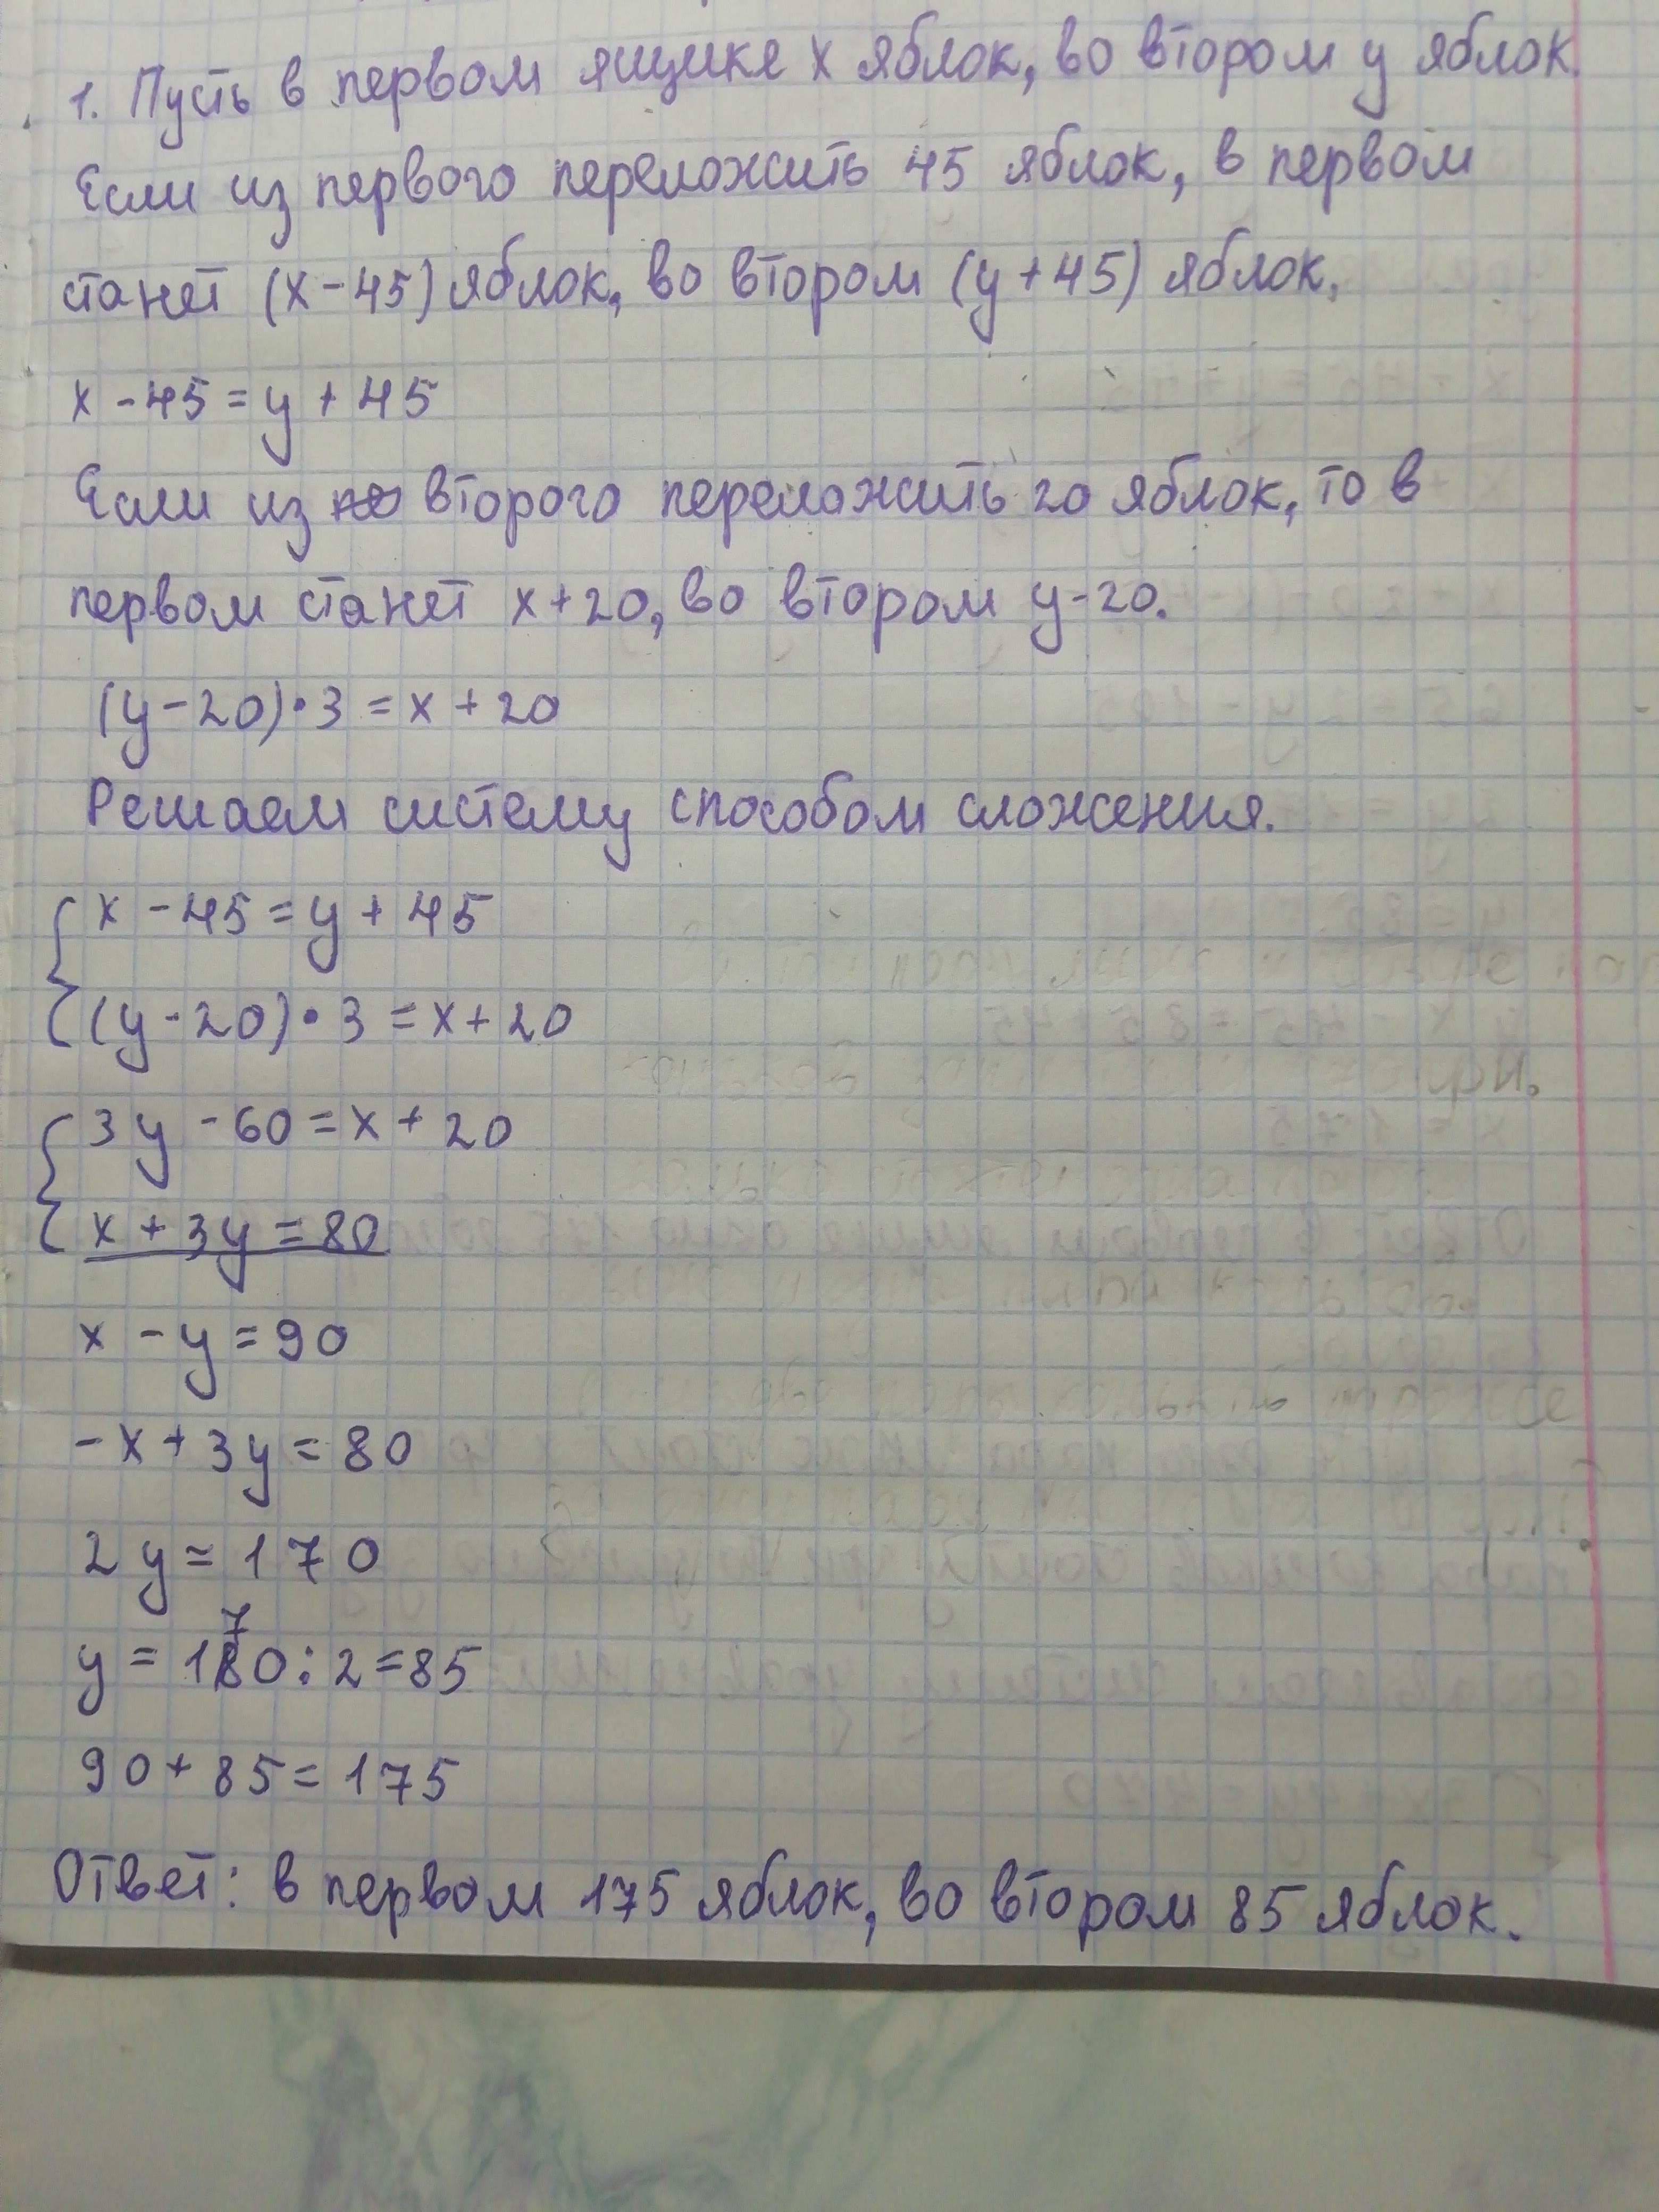 1. Пусть в первом ящике x яблок, во втором y яблок.
Если из первого переложить 45 яблок, в первом
станет (x-45) яблок, во втором (y+45) яблок.
x-45=y+45
Если из второго переложить 20 яблок, то в
первом станет x+20, во втором y-20.
(y-20)·3=x+20
Решаем систему способом сложения.
x-45=y+45
(y-20)·3=x+20
3y-60=x+20
x+3y=80
x-y=90
-x+3y=80
2y=170
y=170:2=85
90+85=175
Ответ: в первом 175 яблок, во втором 85 яблок.